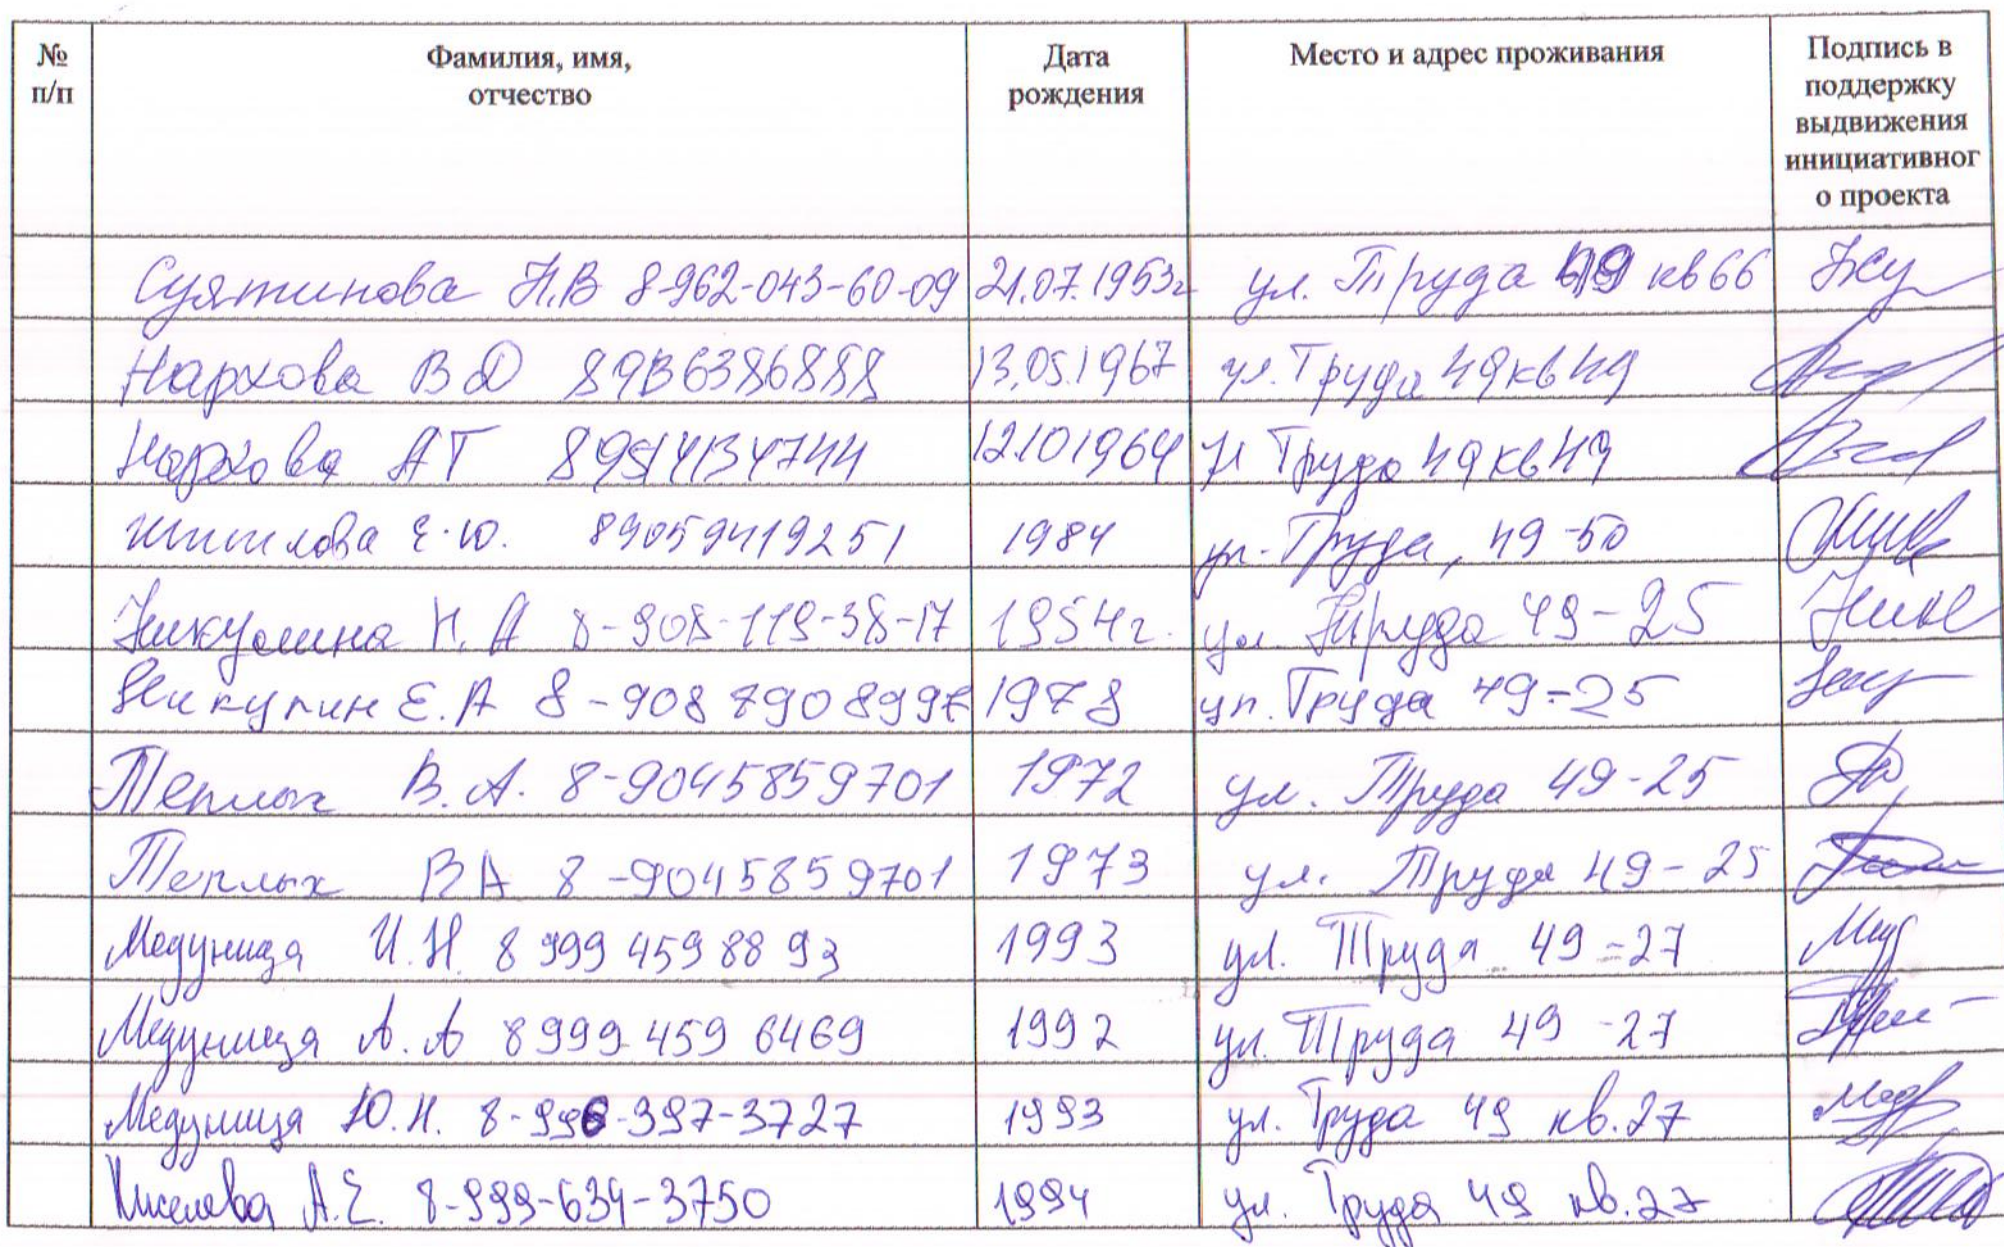 № п/п
Фамилия, имя, отчество
Дата рождения
Место и адрес проживания
Подпись в поддержку выдвижения инициативног о проекта
Суятинова Н.В 8-962-043-60-09 21.07.1953г ул. Труда 49 кв 66
Нархова В Д 89 6386888 13.05.1967 ул. Труда 49 кв 49
Нархова АТ 12.10 1964 ул Труда 49 кв 49
Е.Ю. 89059419251 1984 ул. Труда, 49-50
Никулина Н. А 8-908-119-38-17 1954г. ул. Труда 49-25
Никулин Е.А 8-908 790 8997 1978 ул. Труда 49-25
Теплых В. А. 8-9045859701 1972 ул. Труда 49-25
Теплых ВА 8-9045859701 1973 ул. Труда 49-25
Медуница И.Н. 8 999 459 88 93 1993 ул. Труда 49-27
Медуница А.А 8999 459 6469 1992 ул. Труда 49-27
Медуница Ю.Н. 8-996-397-3727 1993 ул. Труда 49 кв.27
Киселева А.Е. 8-999-634-3750 1994 ул. Труда 49 кв.27